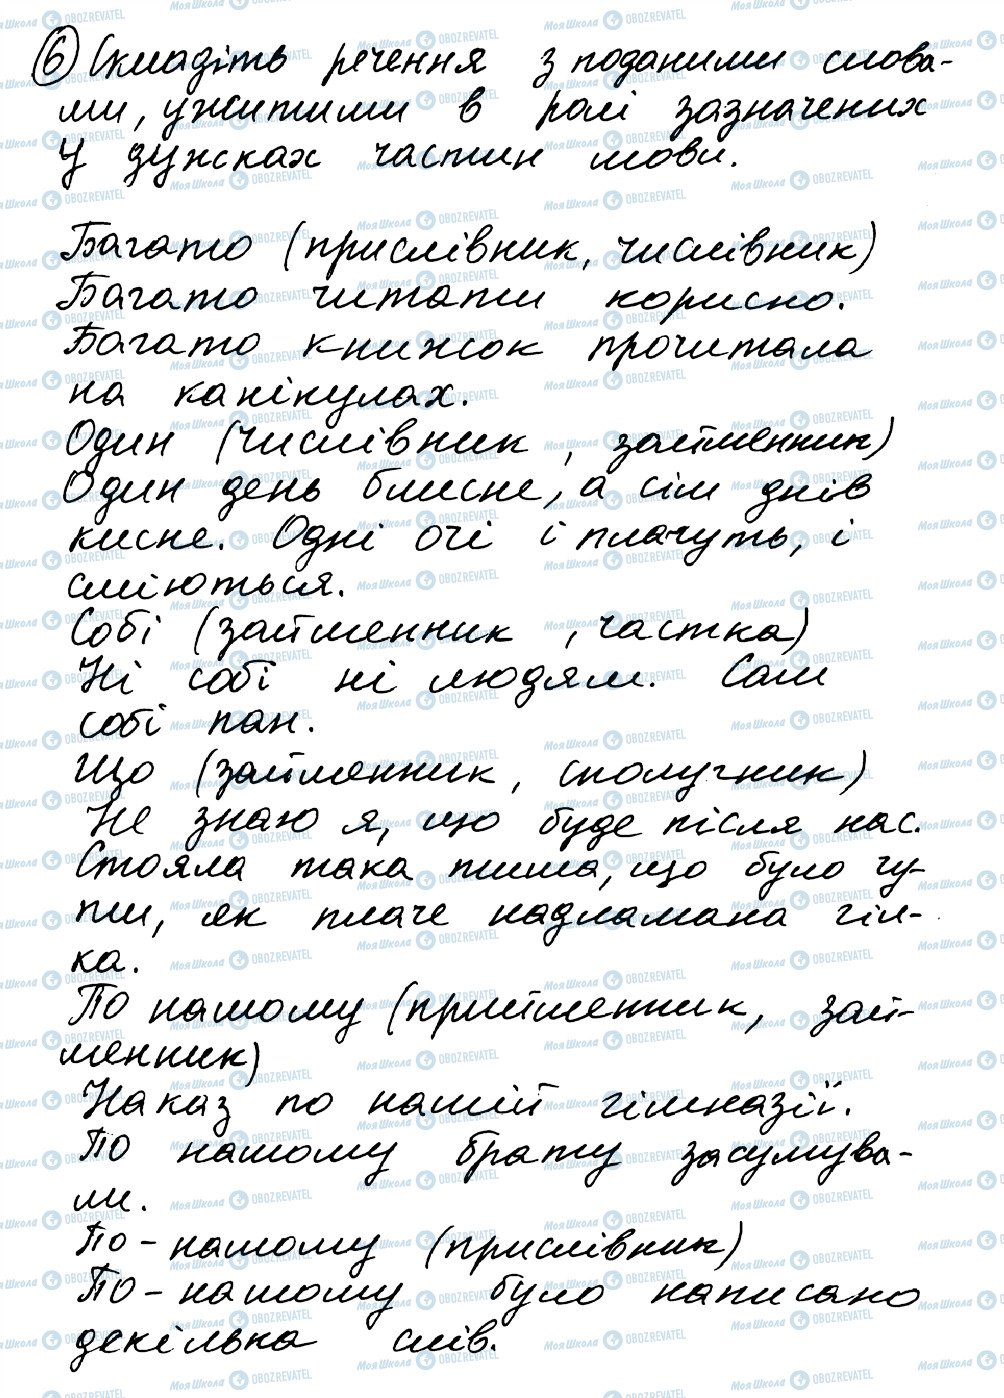 6 Складіть речення з поданими слова-
ми, ужитими в ролі зазначених
у дужках частин мови.
Багато (прислівник, числівник)
Багато читати корисно.
Багато книжок прочитала
на канікулах.
Один (числівник, займенник)
Один день блисне, а сім днів
кисне. Одні очі і плачуть, і
сміються.
Собі (займенник, частка)
Ні собі ні людям. Сам
собі пан.
Що (займенник, сполучник)
Не знаю я, що буде після нас.
Стояла така тиша, що було чу-
ти, як плаче надламана гіл-
ка.
По нашому (прийменник, зай-
менник)
Наказ по нашій гімназії.
По нашому брату засумува-
ли.
По-нашому (прислівник)
По-нашому було написано
декілька слів.